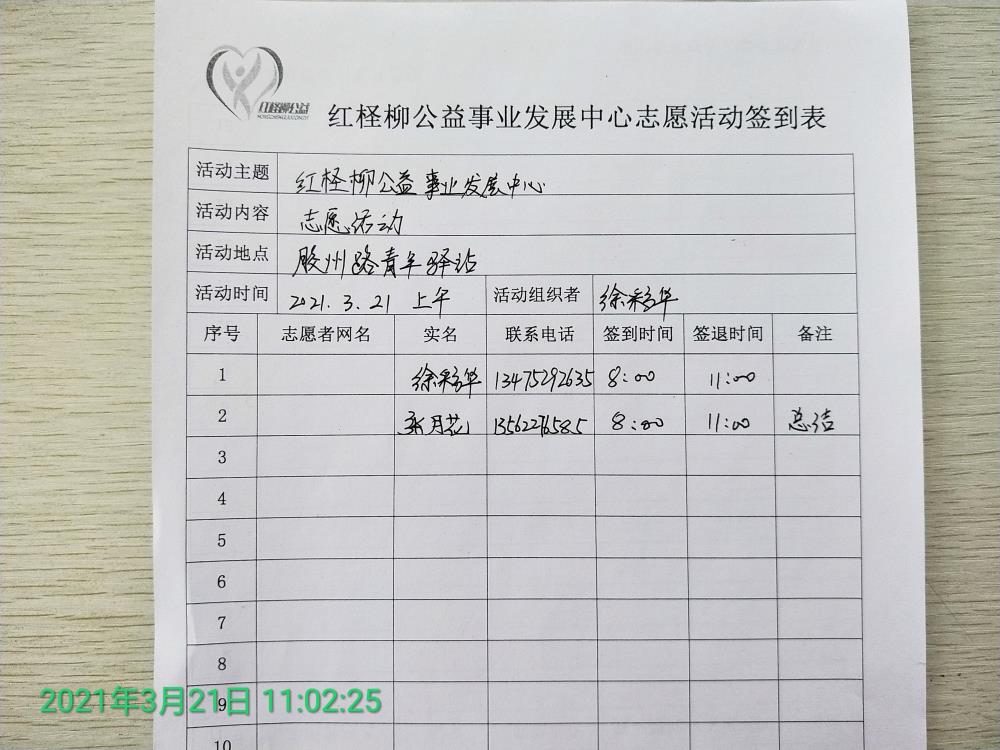 红柽柳公益
红柽柳公益事业发展中心志愿活动签到表
活动主题 红柽柳公益事业发展中心
活动内容 志愿活动
活动地点 胶州路青年驿站
活动时间 2021.3.21 上午 活动组织者 徐彩华
序号 志愿者网名 实名 联系电话 签到时间 签退时间 备注
1 徐彩华 13475292635 8:00 11:00
2 月花 13562276585 8:00 11:00 总结
3
4
5
6
7
8
9
10
2021年3月21日 11:02:25